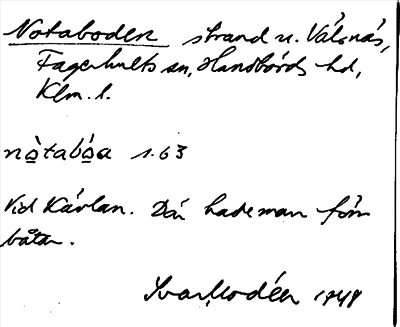 Notaboden strand u.Válsnás,
Fagerhults sn, Handbörds hd,
Klm. l.
nòtabó̀a 1.63
Vid Kávlan. Där hade man förr
båtar.
Ivar Modéer 1948